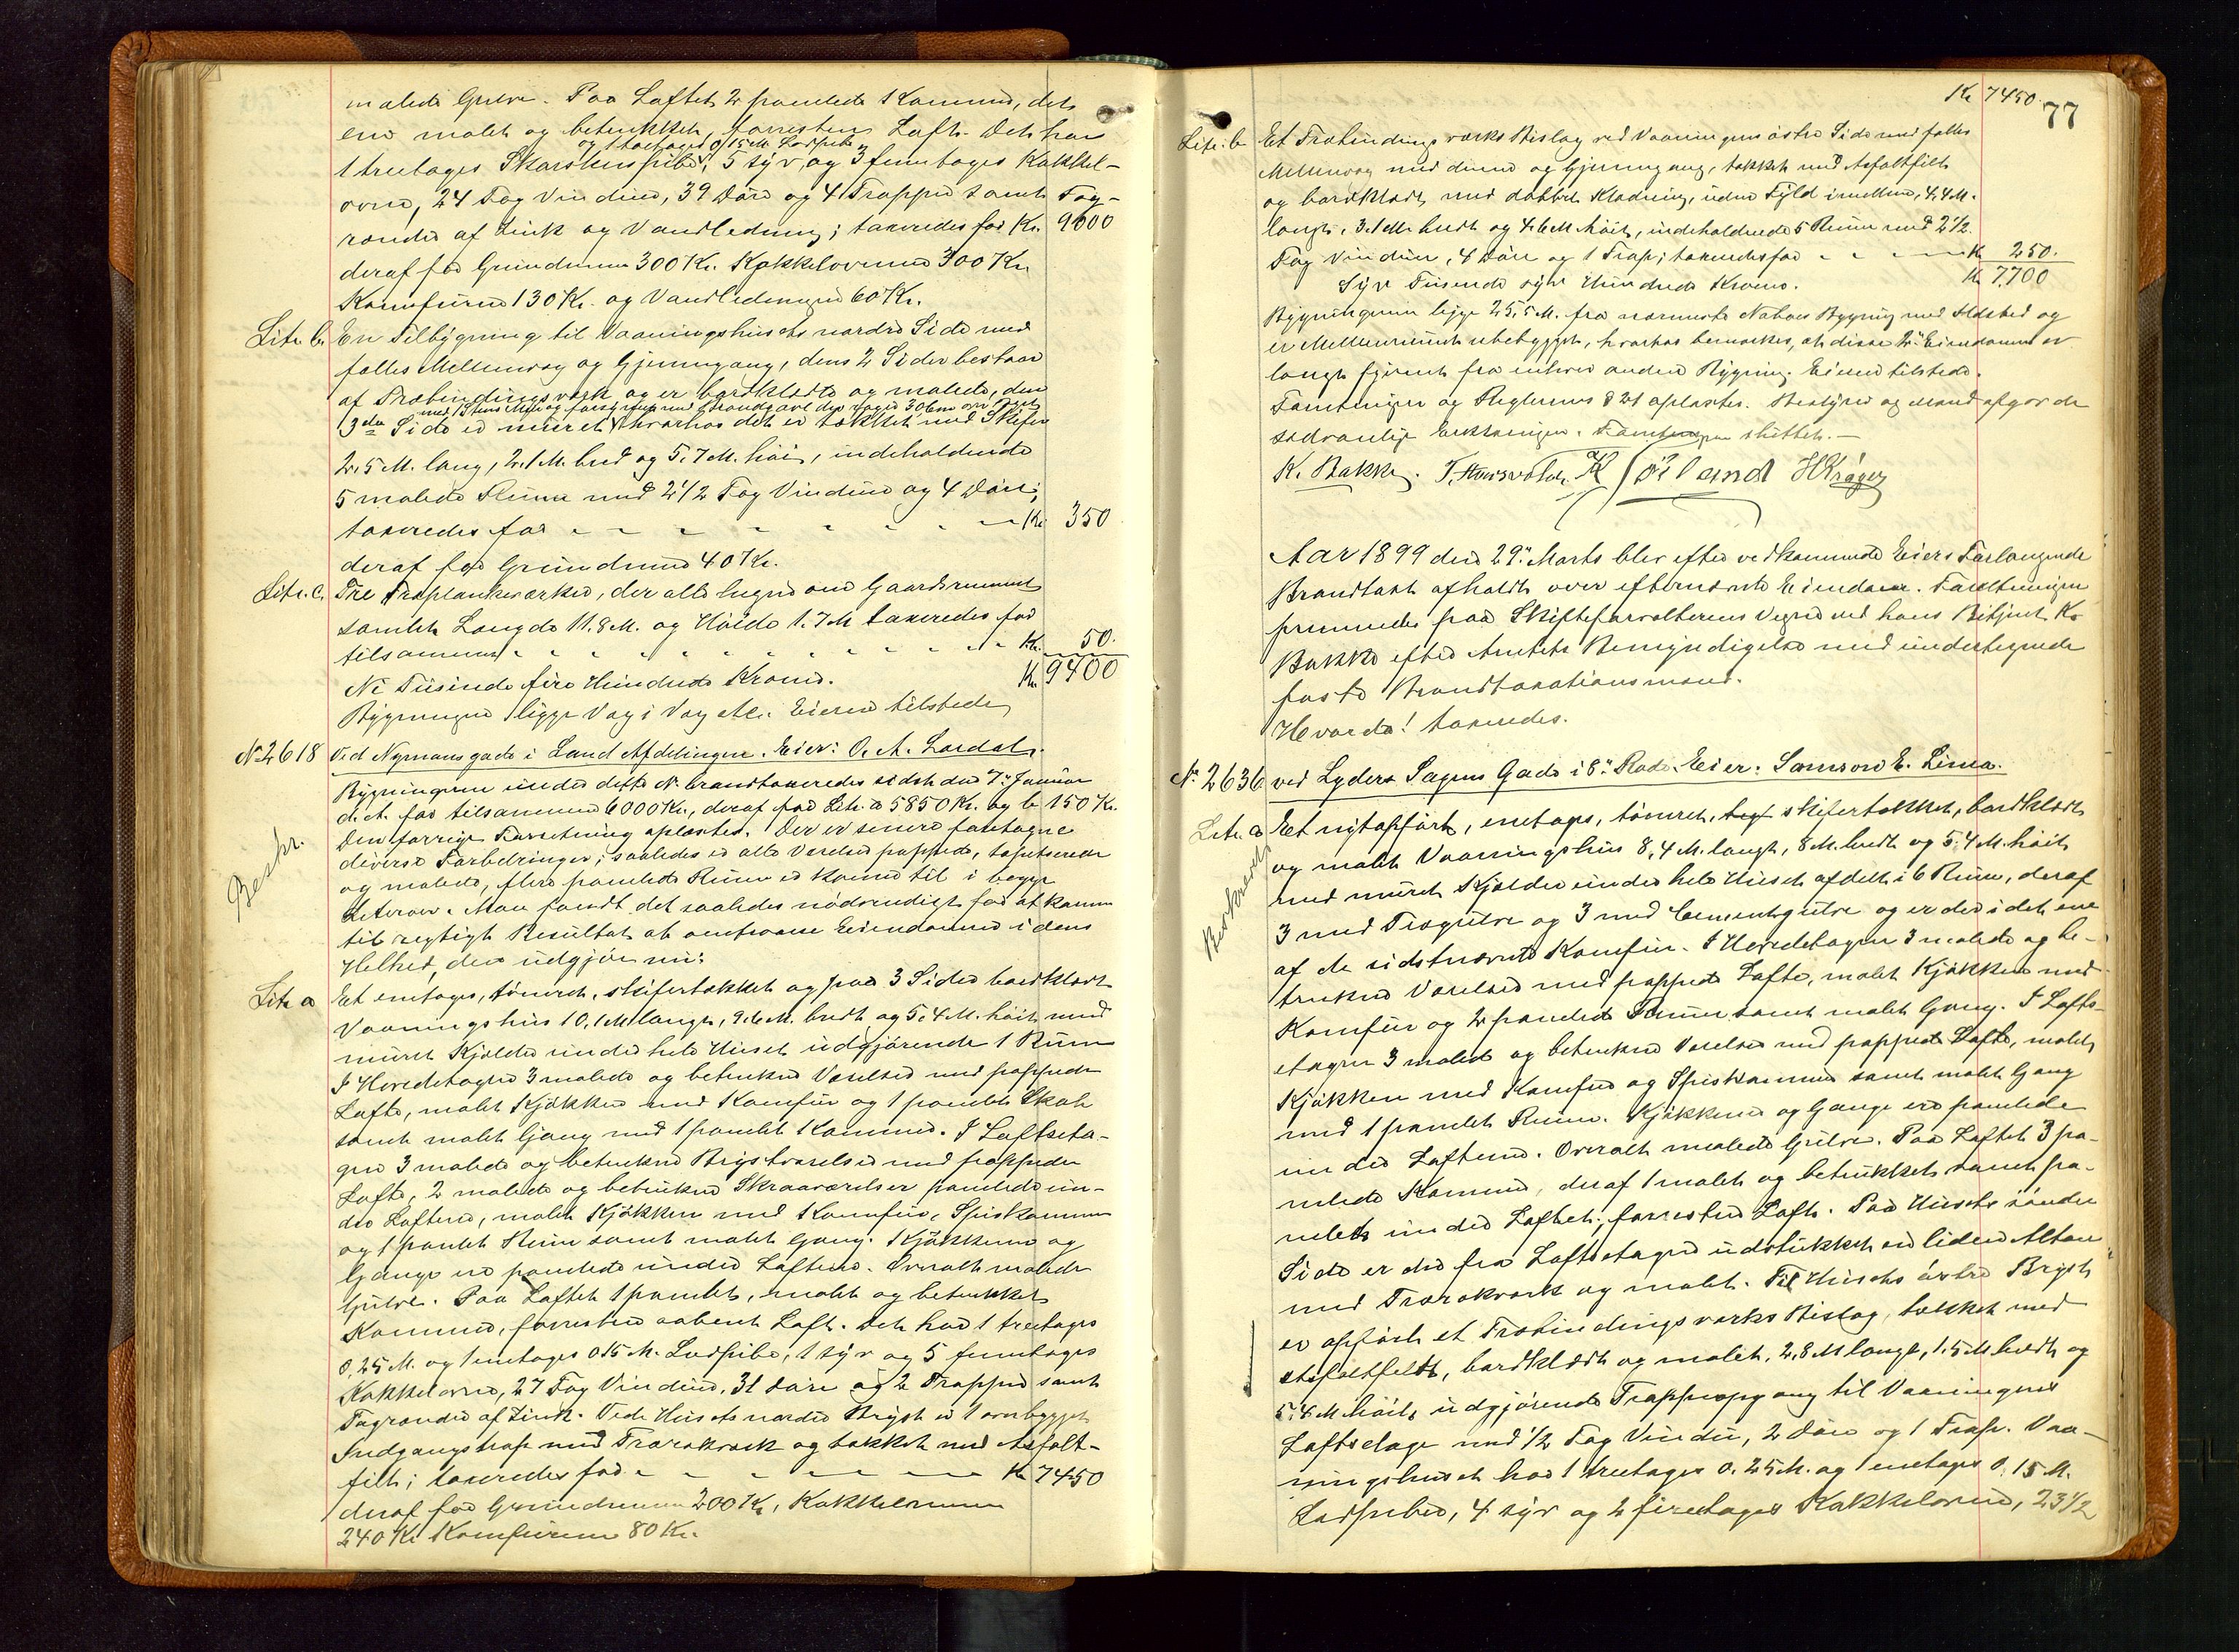 malede Gulve. Paa Loftet 2 panelede Kammere, det
ene malet og betrukket, forresten Loft. Det har
og 1 toetages 0,15 M. Lodpibe
1 treetages Skorstenspibe, 5 syv og 3 femetages Kakkel-
ovne, 24 Fag Vinduer, 39 Døre og 4 Trapper samt Tag-
render af Zink og Vandledning; taxeredes for Kr. 9000
deraf for Grundmuren 300 Kr. Kakkelovnene 300 Kr.
Komfurene 130 Kr. og Vandledningen 60 Kr.
Litr. b. En Tilbygning til Vaaningshusets nordre Side med
fælles Mellemvæg og Gjennemgang, dens 2 Sider bestaar
af Træbindingsværk og er bordklædte og malede, den
3die Side er muret hvorhos det er tækket med Skifer
2,5 M. lang, 2,1 M. bred og 5,7 M. høi, indeholdende
5 malede Rum med 2 1/2 Fag Vinduer og 4 Døre;
taxeredes for - - - - - - Kr. 350
deraf for Grundmuren 40 Kr.
Litr. c. Tre Træplankeværker, der alle hegner om Gaardsrummet
samlet Længde 11,8 M. og Høide 1,7 M taxeredes for
tilsammen - - - - - - Kr. 50.
Ni Tusinde fire Hundrede Kroner. Kr. 9400
Bygningerne ligge Væg i Væg etc. Eieren tilstede
No 2618 Ved Nymansgade i Land Afdelingen. Eier: O. A. Lærdal.
Bygningerne under dette No brandtaxeredes sidst den 7. Januar
d. A. for tilsammen 6000 Kr., deraf for Litr. a 5850 Kr. og b 150 Kr.
Den forrige Forretning oplæstes. Der er senere foretagne
Beskr.
diverse Forbedringer; saaledes er alle Værelser pappede, tapetserede
og malede, flere panelede Rum er kommet til i begge
Literaer. Man fandt det saaledes nødvendigt for at komme
til rigtigt Resultat at omtaxere Eiendommen i dens
Helhed, den udgjør nu:
Litr a Et enetages, tømret, skifertækket og paa 3 Sider bordklædt
Vaaningshus 10,1 M langt, 9,6 M. bredt og 5,4 M. høit med
muret Kjælder under hele Huset udgjørende 1 Rum
I Hovedetagen 3 malede og betrukne Værelser med pappede
Lofte, malet Kjøkken med Komfur og 1 panelet Skab
samt malet Gang med 1 panelet Kammer. I Loftseta-
gen 3 malede og betrukne Brystværelser med pappede
Lofte, 2 malede og betrukne Skraaværelser panelede un-
der Loftene, malet Kjøkken med Komfur, Spiskammer
og 1 panelet Rum samt malet Gang. Kjøkkenene og
Gange ere panelede under Loftene. Overalt malede
Gulve. Paa Loftet 1 panelet, malet og betrukket
Kammer, forresten aabent Loft. Det har 1 treetages
0,25 M. og 1 enetages 0,15 M. Lodpibe, 1 syv og 5 femetages
Kakkelovne, 27 Fag Vinduer, 31 Døre og 2 Trapper samt
Tagrender af Zink. Ved Husets nordre Bryst er 1 overbygget
Indgangstrap med Trærækværk og tækket med Asfalt-
filt; taxeredes for - - - - - Kr 7450
deraf for Grundmuren 200 Kr, Kakkelovnene
240 Kr Komfurene 80 Kr.
Kr 7450.
77
Litr. b Et Træbindingsværks Bislag ved Vaaningens østre Side med fælles
Mellemvæg med denne og Gjennemgang, tækket med Asfaltfilt
og bordklædt med dobbelt Klædning, uden Fyld imellem, 4,4 M.
langt, 3,1 M. bredt og 4,6 M høit, indeholdende 5 Rum med 2 1/2
Fag Vinduer, 4 Døre og 1 Trap; taxeredes for - - - Kr 250.
Syv Tusinde syv Hundrede Kroner. Kr 7,700
Bygningerne ligge 25,5 M. fra nærmeste Naboes Bygning med Ildsted og
er Mellemrummet ubebygget, hvorhos bemærkes, at disse 2de Eiendomme er
langt fjernet fra enhver anden Bygning. Eieren tilstede.
Forretningen og Reglernes § 21 oplæstes. Bestyrer og Mænd afgav de
sædvanlige Erklæringer. Forretningen sluttet.—
K. Bakke. T. Housvolden. K Søiland H Krøger
Aar 1899 den 29. Marts blev efter vedkommende Eiers Forlangende
Brandtaxt afholdt over efternævnte Eiendom. Forretningen
fremmedes paa Skifteforvalterens Vegne ved hans Betjent K.
Bakke efter Amtets Bemyndigelse med undertegnede
faste Brandtaxationsmænd.
Hvorda! taxeredes.
No. 2636 ved Lyders Sagens Gade i 8. Rode. Eier: Samson E. Lima.
Litr. a Et nytopført, enetages, tømret, skifertækket, bordklædt
og malet Vaaningshus 8,4 M. langt, 8 M. bredt og 5,4 M. høit
med muret Kjælder under hele Huset afdelt i 6 Rum, deraf
3 med Trægulve og 3 med Cementgulve og er der i det ene
af de sidstnævnte Komfur. I Hovedetagen 3 malede og be-
trukne Værelser med pappede Lofte, malet Kjøkken med
Komfur og 2 panelede Rum samt malet Gang. I Lofts-
etagen 3 malede og betrukne Værelser med pappede Lofte, malet
Kjøkken med Komfur og Spiskammer samt malet Gang
med 1 panelet Rum. Kjøkkener og Gange ere panelede
under Loftene. Overalt malede Gulve. Paa Loftet 3 pa-
nelede Kammere, deraf 1 malet og betrukket samt pa-
nelet under Loftet; forresten Loft. Paa Husets søndre
Side er der fra Loftsetagen udstukket en liden Altan
med Trærækværk og malet. Til Husets østre Bryst
er opført et Træbindingsværks Bislag, tækket med
Asfaltfeldt, bordklædt og malet, 2,8 M langt, 1,5 M bredt og
5,4 M høit, udgjørende Trappeopgang til Vaaningens
Loftsetage med 1/2 Fag Vindu, 2 Døre og 1 Trap. Vaa-
ningshuset har 1 treetages 0,25 M. og 1 enetages 0,15 M.
Lodpiber, 4 syv og 2 fireetages Kakkelovne, 23 1/2